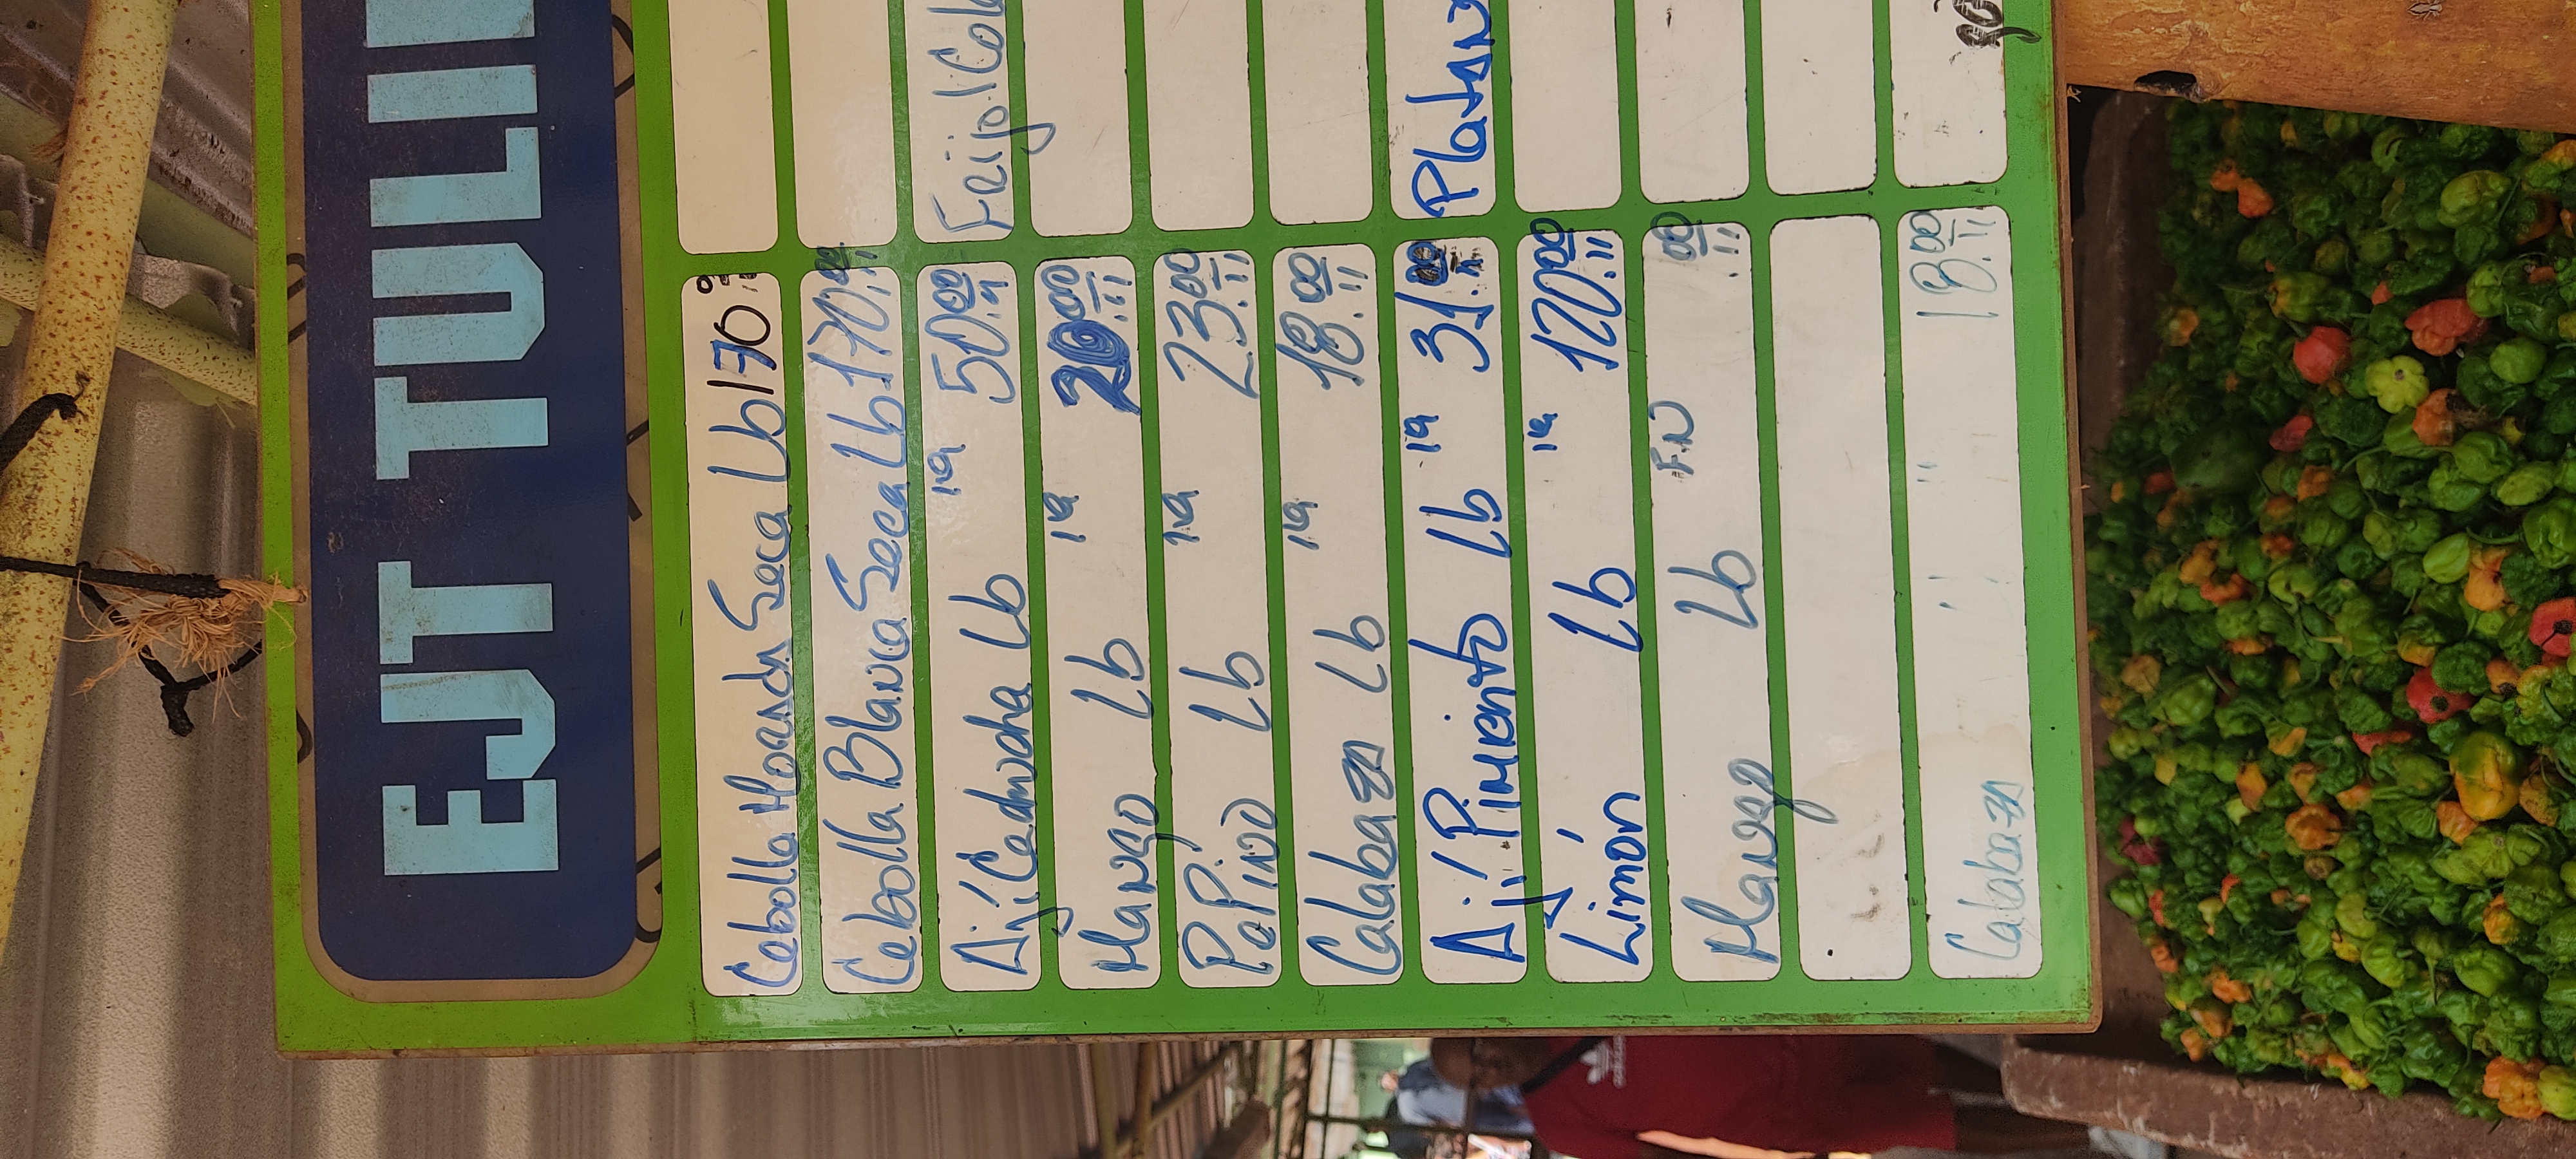 EJT TULI
Cebolla Morada Seca Lb 170.00
Cebolla Blanca Seca Lb 170.00
Ají Cachucha Lb 1ra 50.00
Frijol Col
Mango Lb 1ra 20.00
Pepino Lb 1ra 23.00
Calabaza Lb 1ra 18.00
Ají Pimiento Lb 1ra 31.00
Platan
Limón Lb 1ra 120.00
Mango Lb F.N .00
Calabaza " " 18.00